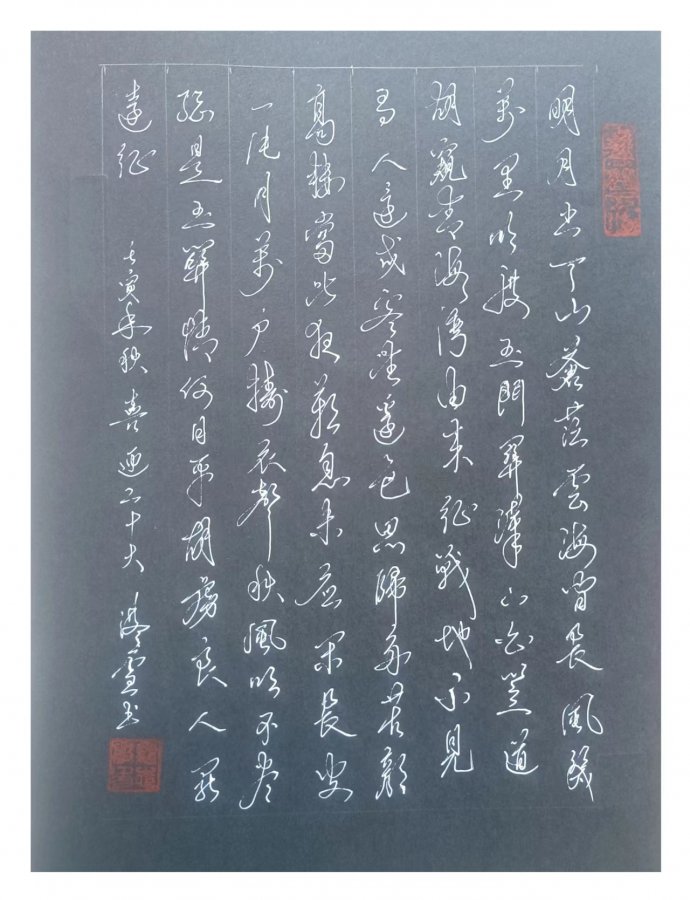 明月出天山蒼茫雲海間長風幾
萬里吹度玉門關漢下白登道
胡窺青海灣由來征戰地不見
有人還戍客望邊色思歸多苦顏
高樓當此夜歎息未應閑長安
一片月萬戶擣衣聲秋風吹不盡
總是玉關情何日平胡虜良人罷
遠征 壬寅年秋喜迎二十大 雪书